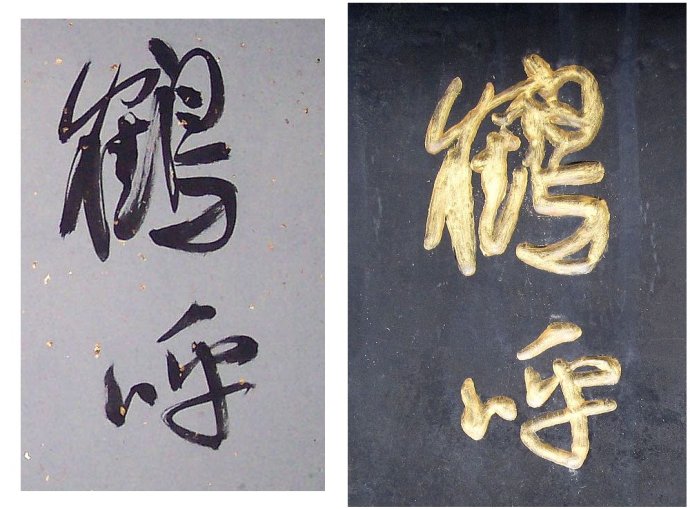 鶴呼
鶴呼